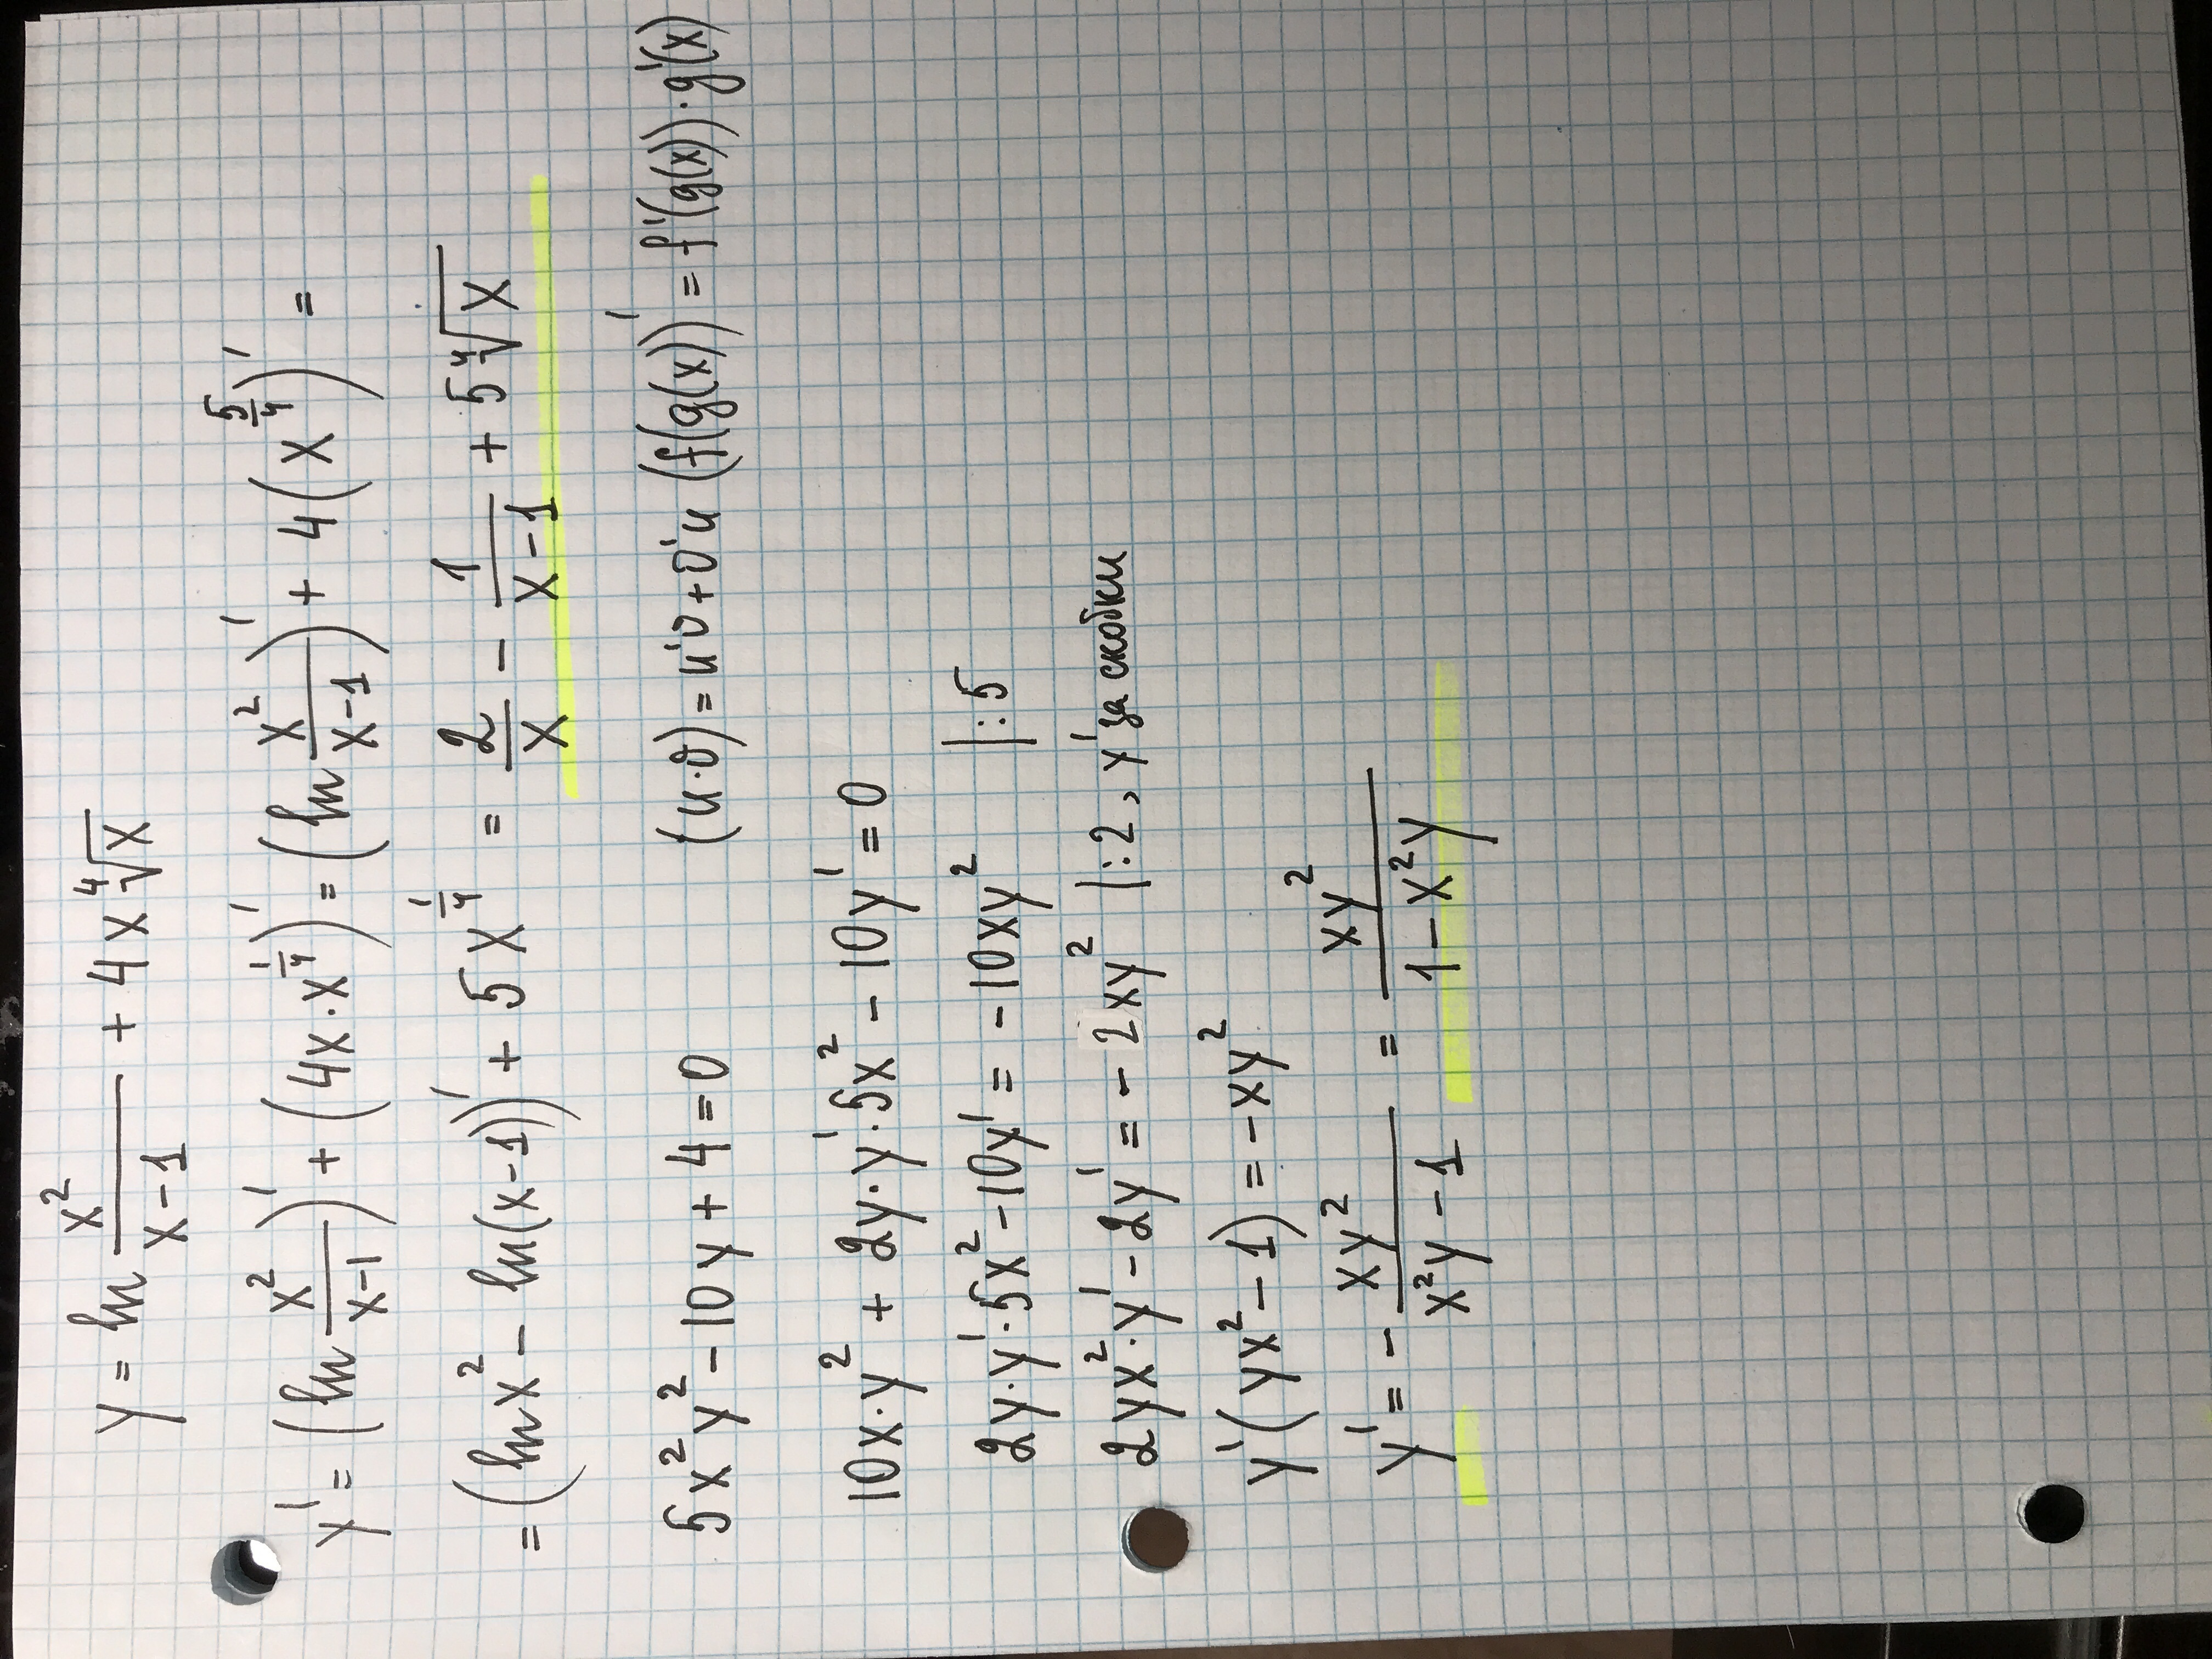 y = ln x²/(x-1) + 4x ⁴√x
y' = (ln x²/(x-1))' + (4x·x^(1/4))' = (ln x²/(x-1))' + 4(x^(5/4))' =
= (ln x² - ln(x-1))' + 5x^(1/4) = 2/x - 1/(x-1) + 5 ⁴√x
5x²y² - 10y + 4 = 0 (u·v)=u'v+v'u (f(g(x))' = f'(g(x))·g'(x)
10x·y² + 2y·y'·5x² - 10y' = 0
2y·y'·5x² - 10y' = -10xy² |:5
2yx²·y' - 2y' = -2xy² |:2, y' за скобки
y'(yx² - 1) = -xy²
y' = - xy²/(x²y - 1) = xy²/(1 - x²y)